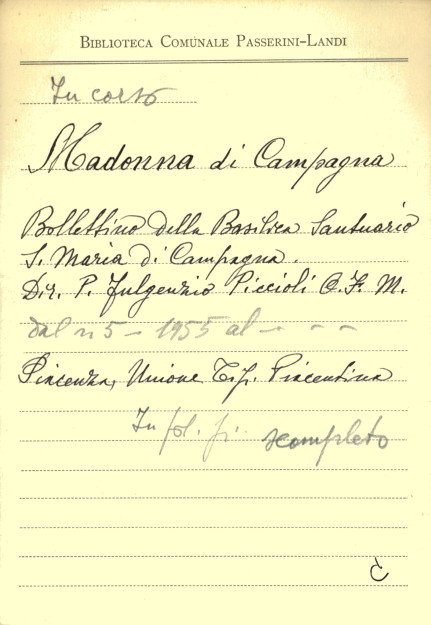 BIBLIOTECA COMUNALE PASSERINI-LANDI
In corso
Madonna di Campagna
Bollettino della Basilica Santuario
S. Maria di Campagna.
Dir. P. Fulgenzio Piccioli O. F. M.
dal n 5 - 1955 al - - -
Piacenza, Unione Tip. Piacentina
In fol. fi. scompleto